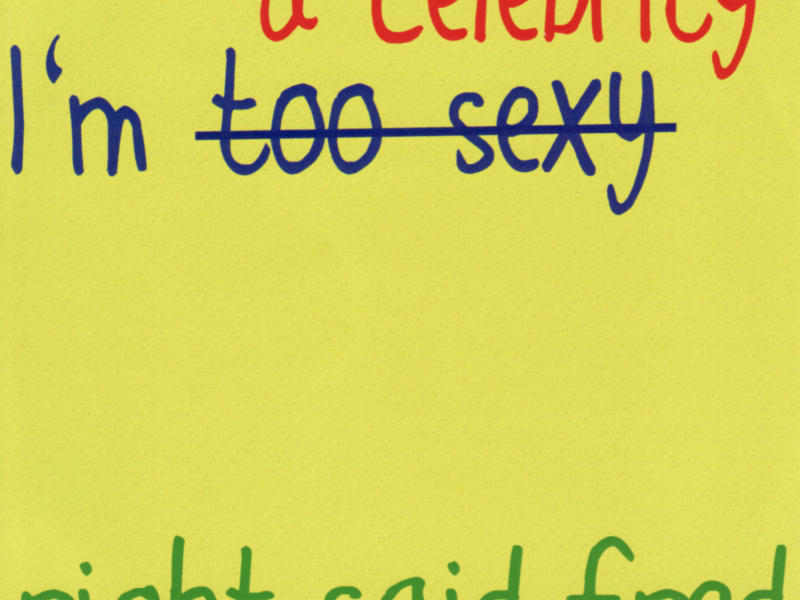 a celebrity
I'm too sexy
right said fred